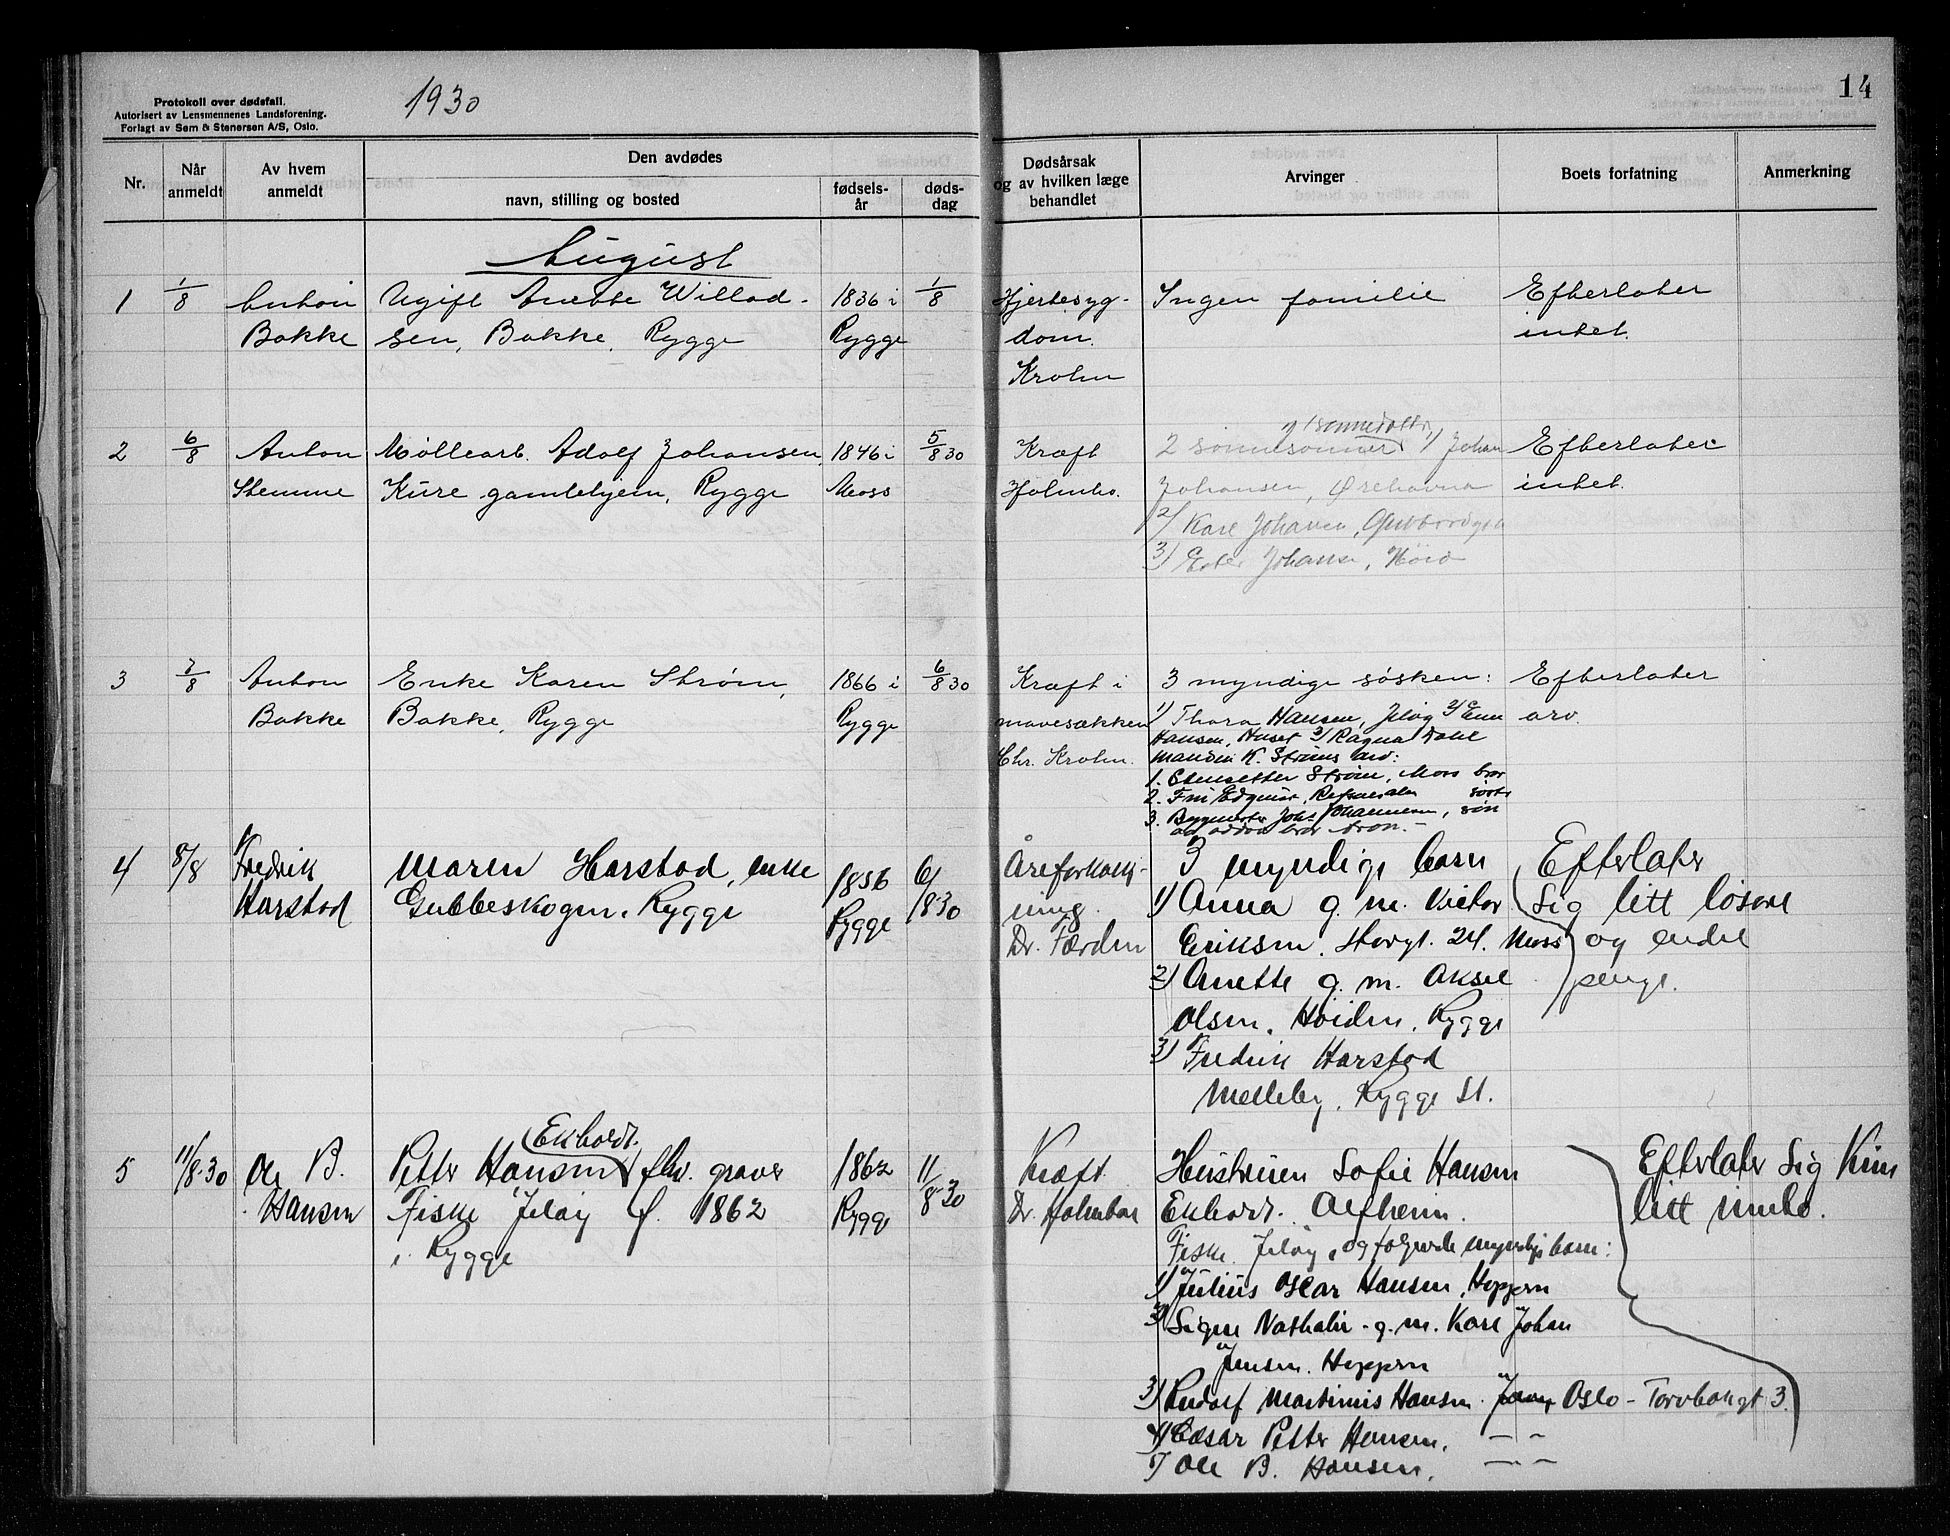 Protokoll over dødsfall.
Autorisert av Lensmennenes Landsforening.
Forlagt av Sem & Stenersen A/S, Oslo.
1930
14
Nr.
Når anmeldt
Av hvem anmeldt
Den avdødes
navn, stilling og bosted
fødsels-år
døds-dag
Dødsårsak og av hvilken læge behandlet
Arvinger
Boets forfatning
Anmerkning
August
1
1/8
Anton
Bakke
Ugift Anette Willad-
sen, Bakke, Rygge
1836 i
Rygge
1/8
Hjertesyg-
dom.
Krohn
Ingen familie
Efterlater
intet.
2
6/8
Anton
Stemme
Møllearb. Adolf Johansen,
Kure gamlehjem, Rygge
1846 i
Moss
5/8 30
Kræft
Holmbo.
1 sønnedatter
2 sønnesønner 1/ Johan
Johansen, Ørehavna
2/ Kare Johansen,
3/ Johansen,
Efterlater
intet.
3
7/8
Anton
Bakke
Enke Karen Strøm,
Bakke, Rygge
1866 i
Rygge
6/8 30
Kræft i
mavesækken
Chr. Krohn.
3 myndige søsken:
1/ Thora Hansen, Jeløy 2/ Enn
Hansen, Huset 3/ Ragna Dahl
K. Strøms arv:
1. Strøm, Moss bror
2. Fru
3. Johs Johannessen, søn
Efterlater
arv.
4
8/8
Fredrik
Harstad
Maren Harstad, enke
Gubbeskogen, Rygge
1856
Rygge
6/8 30
Åreforkalk-
ning.
Dr. Færden
3 myndige barn
1) Anna g. m. Victor
Eriksen, Storgt. 24. Moss
2) Anette g. m. Aksel
Olsen, Høiden, Rygge
3) Fredrik Harstad
Melleby, Rygge St.
Efterlater
sig litt løsøre
og endel
penge.
5
11/8-30
Ole B.
Hansen
Ekholdt.
Petter Hansen fhv. graver
Fiske Jeløy f. 1862
i Rygge
1862
Rygge
11/8-30
Kræft.
Dr. Holmboe
Hustruen Sofie Hansen
Ekholdt. Alfheim.
Fiske. Jeløy, og følgende myndige barn:
1) Julius Oscar Hansen, Hoppern
2) Signe Nathalie - g. m. Karl Johan
Jensen. Hoppern
3) Rudolf Martinius Hansen. Jeløy Oslo - Torvbakgt 3.
4) Edsar Petter Hansen. — " —
5) Ole B. Hansen. — " —
Efterlater sig kun
litt innbo.